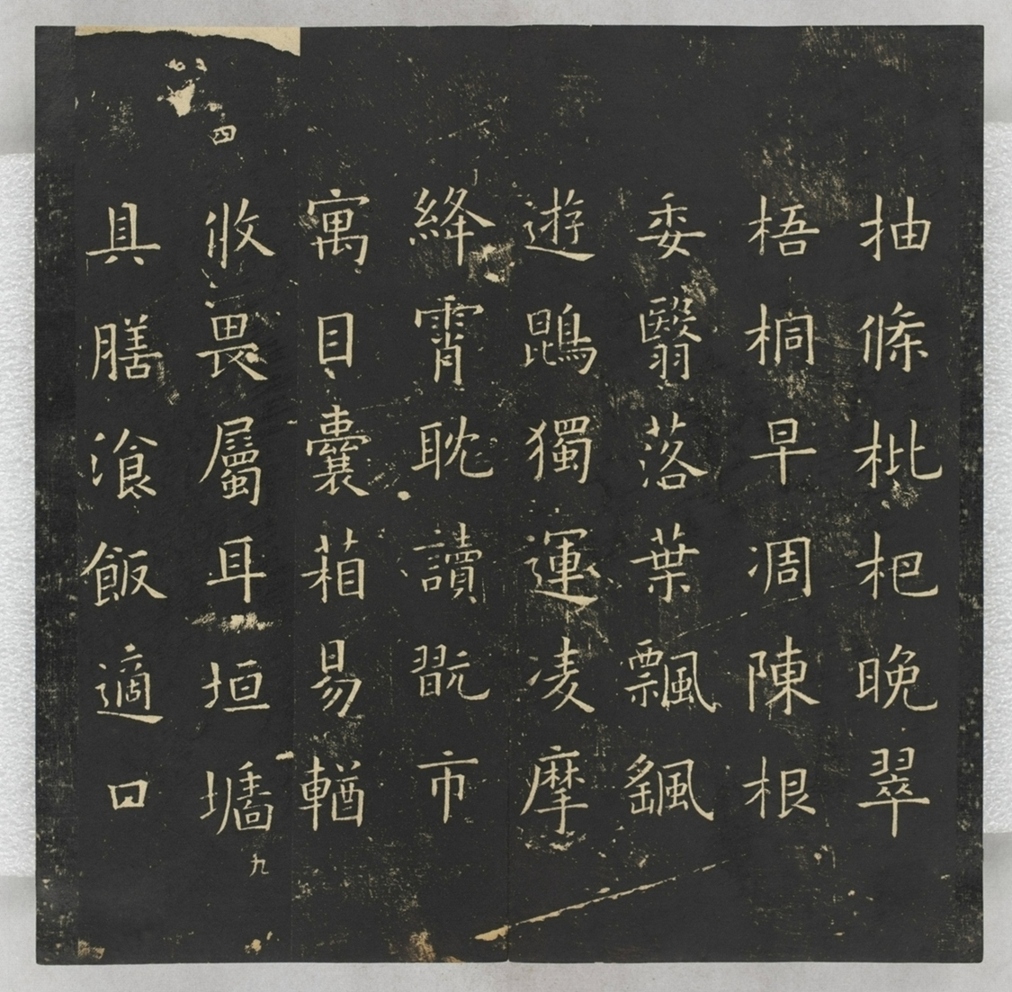 抽條枇杷晚翠
梧桐早凋陳根
委翳落葉飄颻
遊鵾獨運凌摩
絳霄耽讀翫市
寓目囊箱易輶
四
攸畏屬耳垣墻
九
具膳湌飯適口